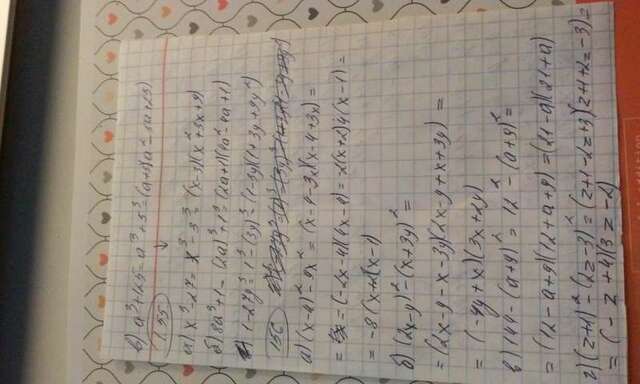 в) a³+125=a³+5³=(a+5)(a²-5a+25)
155
а) x³-27=x³-3³=(x-3)(x²+3x+9)
б) 8a³+1=(2a)³+1³=(2a+1)(4a²-2a+1)
1-27y³=1³-(3y)³=(1-3y)(1+3y+9y²)
156
а) (x-4)²-9x²=(x-4-3x)(x-4+3x)=
=(-2x-4)(4x-4)=
=-8(x+2)(x-1)
б) (2x-y)²-(x+3y)²=
=(2x-y-x-3y)(2x-y+x+3y)=
=(-4y+x)(3x+2y)
в) 144-(a+9)²=12²-(a+9)²=
=(12-a+9)(12+a+9)=(21-a)(21+a)
г) (z+1)²-(2z-3)²=(z+1-2z+3)(z+1+2z-3)=
=(-z+4)(3z-2)